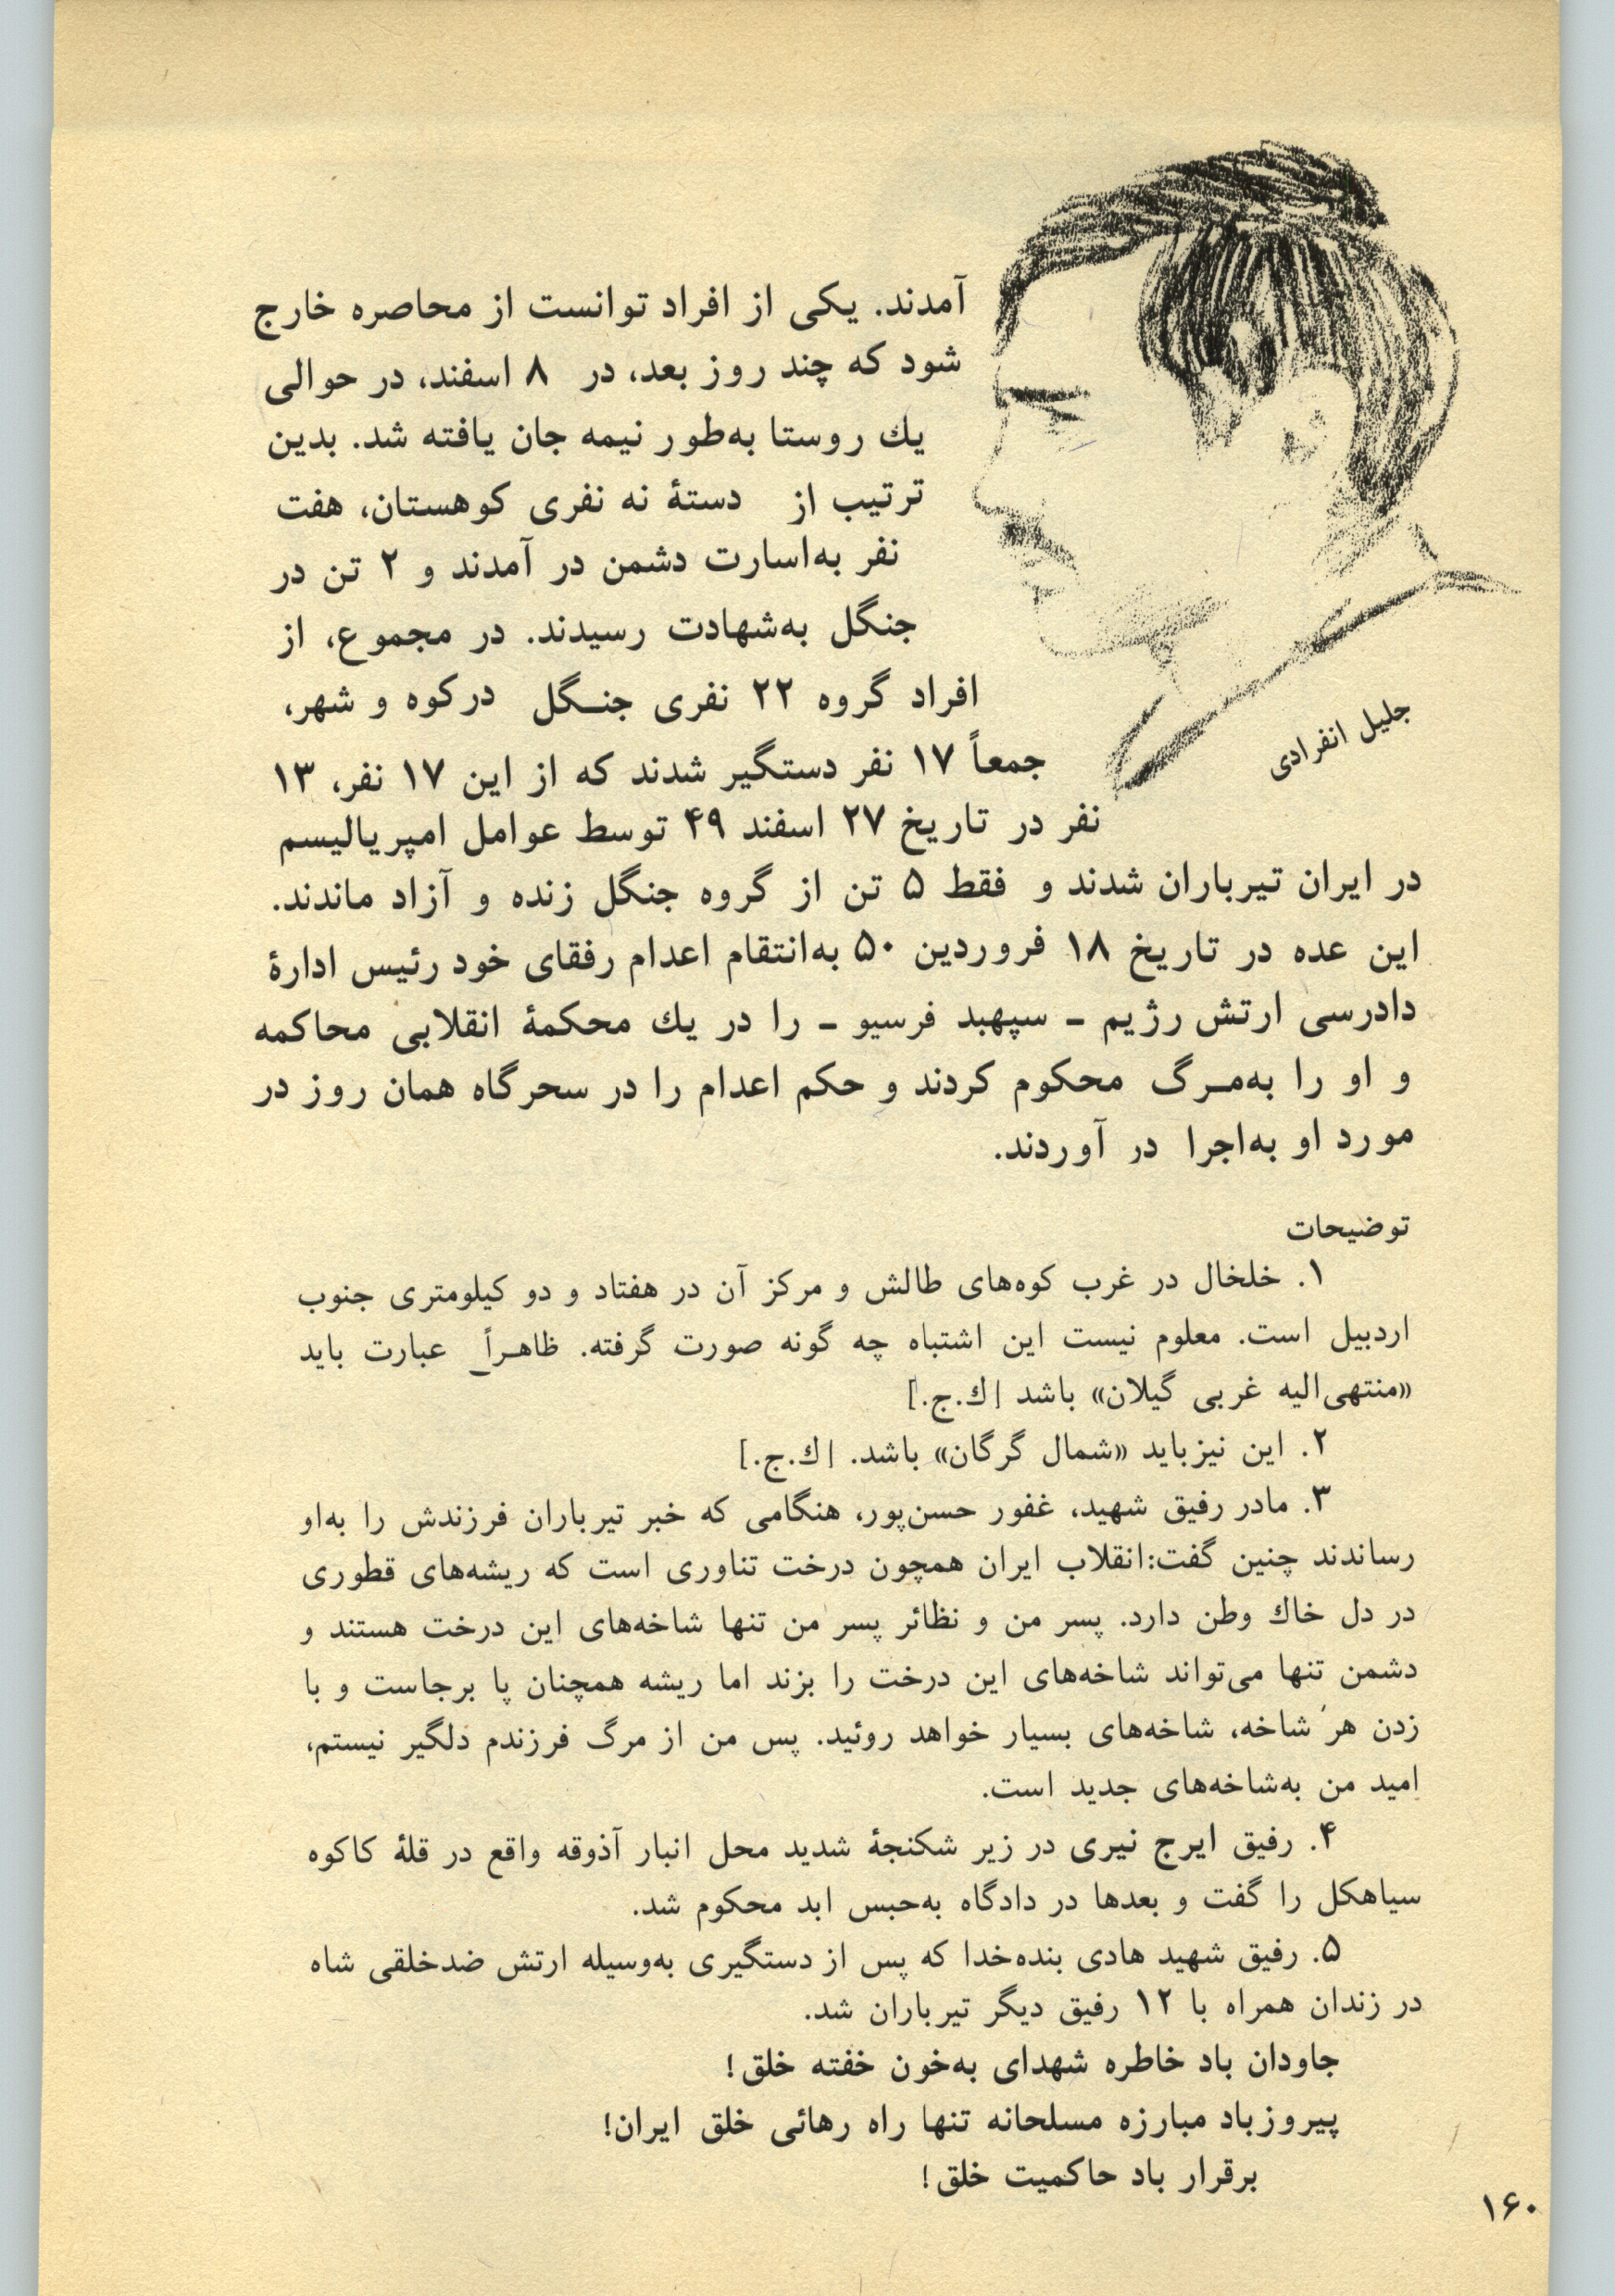 آمدند. یکی از افراد توانست از محاصره خارج
شود که چند روز بعد، در ۸ اسفند، در حوالی
یك روستا به‌طور نیمه جان یافته شد. بدین
ترتیب از دستهٔ نه نفری کوهستان، هفت
نفر به‌اسارت دشمن در آمدند و ۲ تن در
جنگل به‌شهادت رسیدند. در مجموع، از
افراد گروه ۲۲ نفری جنـگل درکوه و شهر،
جمعاً ۱۷ نفر دستگیر شدند که از این ۱۷ نفر، ۱۳
نفر در تاریخ ۲۷ اسفند ۴۹ توسط عوامل امپریالیسم
در ایران تیرباران شدند و فقط ۵ تن از گروه جنگل زنده و آزاد ماندند.
این عده در تاریخ ۱۸ فروردین ۵۰ به‌انتقام اعدام رفقای خود رئیس ادارهٔ
دادرسی ارتش رژیم ـ سپهبد فرسیو ـ را در یك محکمهٔ انقلابی محاکمه
و او را به‌مـرگ محکوم کردند و حکم اعدام را در سحرگاه همان روز در
مورد او به‌اجرا در آوردند.
جلیل انفرادی
توضیحات
۱. خلخال در غرب کوه‌های طالش و مرکز آن در هفتاد و دو کیلومتری جنوب
اردبیل است. معلوم نیست این اشتباه چه گونه صورت گرفته. ظاهـراً عبارت باید
«منتهی‌الیه غربی گیلان» باشد [ك.ج.]
۲. این نیزباید «شمال گرگان» باشد. [ك.ج.]
۳. مادر رفیق شهید، غفور حسن‌پور، هنگامی که خبر تیرباران فرزندش را به‌او
رساندند چنین گفت:انقلاب ایران همچون درخت تناوری است که ریشه‌های قطوری
در دل خاك وطن دارد. پسر من و نظائر پسر من تنها شاخه‌های این درخت هستند و
دشمن تنها می‌تواند شاخه‌های این درخت را بزند اما ریشه همچنان پا برجاست و با
زدن هر شاخه، شاخه‌های بسیار خواهد روئید. پس من از مرگ فرزندم دلگیر نیستم،
امید من به‌شاخه‌های جدید است.
۴. رفیق ایرج نیری در زیر شکنجهٔ شدید محل انبار آذوقه واقع در قلهٔ کاکوه
سیاهکل را گفت و بعدها در دادگاه به‌حبس ابد محکوم شد.
۵. رفیق شهید هادی بنده‌خدا که پس از دستگیری به‌وسیله ارتش ضدخلقی شاه
در زندان همراه با ۱۲ رفیق دیگر تیرباران شد.
جاودان باد خاطره شهدای به‌خون خفته خلق!
پیروزباد مبارزه مسلحانه تنها راه رهائی خلق ایران!
برقرار باد حاکمیت خلق!
۱۶۰